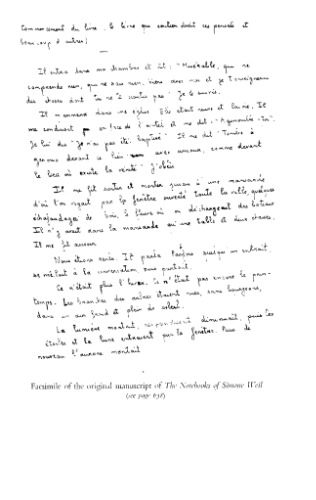 Commencement du livre, le livre qui contient dont ces pensées et
beaucoup d'autres;
Il entra dans ma chambre et dit: "Misérable, qui ne
comprends rien, qui ne sais rien, viens avec moi et je t'enseignerai
des choses dont tu ne te doutes pas." Je le suivis.
Il m'emmena dans une église. Elle était neuve et laide. Il
me conduisit en face de l'autel et me dit: "Agenouille-toi".
Je lui dis "Je n'ai pas été baptisé". Il me dit "Tombe à
genoux devant ce lieu avec amour, comme devant
le lieu où existe la vérité". J'obéis.
Il me fit sortir et monter jusqu'à une mansarde
d'où l'on voyait par la fenêtre ouverte toute la ville, quelques
échafaudages de bois, le fleuve où on déchargeait des bateaux
Il n'y avait dans la mansarde qu'une table et deux chaises.
Il me fit asseoir.
Nous étions seuls. Il parla. Parfois quelqu'un entrait,
se mêlait à la conversation puis partait.
Ce n'était plus l'hiver. Ce n'était pas encore le prin-
temps. Les branches des arbres étaient nues, sans bourgeons,
dans un air froid et plein de soleil.
La lumière montait, resplendissait, diminuait, puis les
étoiles et la lune entraient par la fenêtre. Puis de
nouveau l'aurore montait
Facsimile of the original manuscript of The Notebooks of Simone Weil
(see page 638)